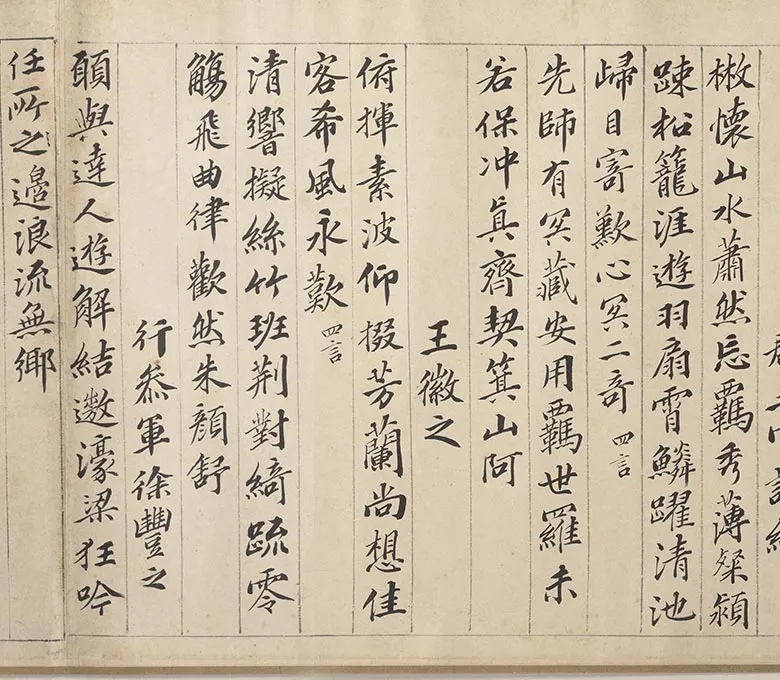 散懷山水蕭然忘羈秀薄粲潁
踈松籠涯遊羽扇霄鱗躍清池
歸目寄歎心冥二奇 四言
先師有冥藏安用羈世羅未
若保冲真齊契箕山阿
王徽之
俯揮素波仰掇芳蘭尚想佳
客希風永歎 四言
清響擬絲竹班荊對綺疏零
觴飛曲律歡然朱顏舒
行叅軍徐豐之
願與達人遊解結遨濠梁狂吟
任所之邉浪流無鄉